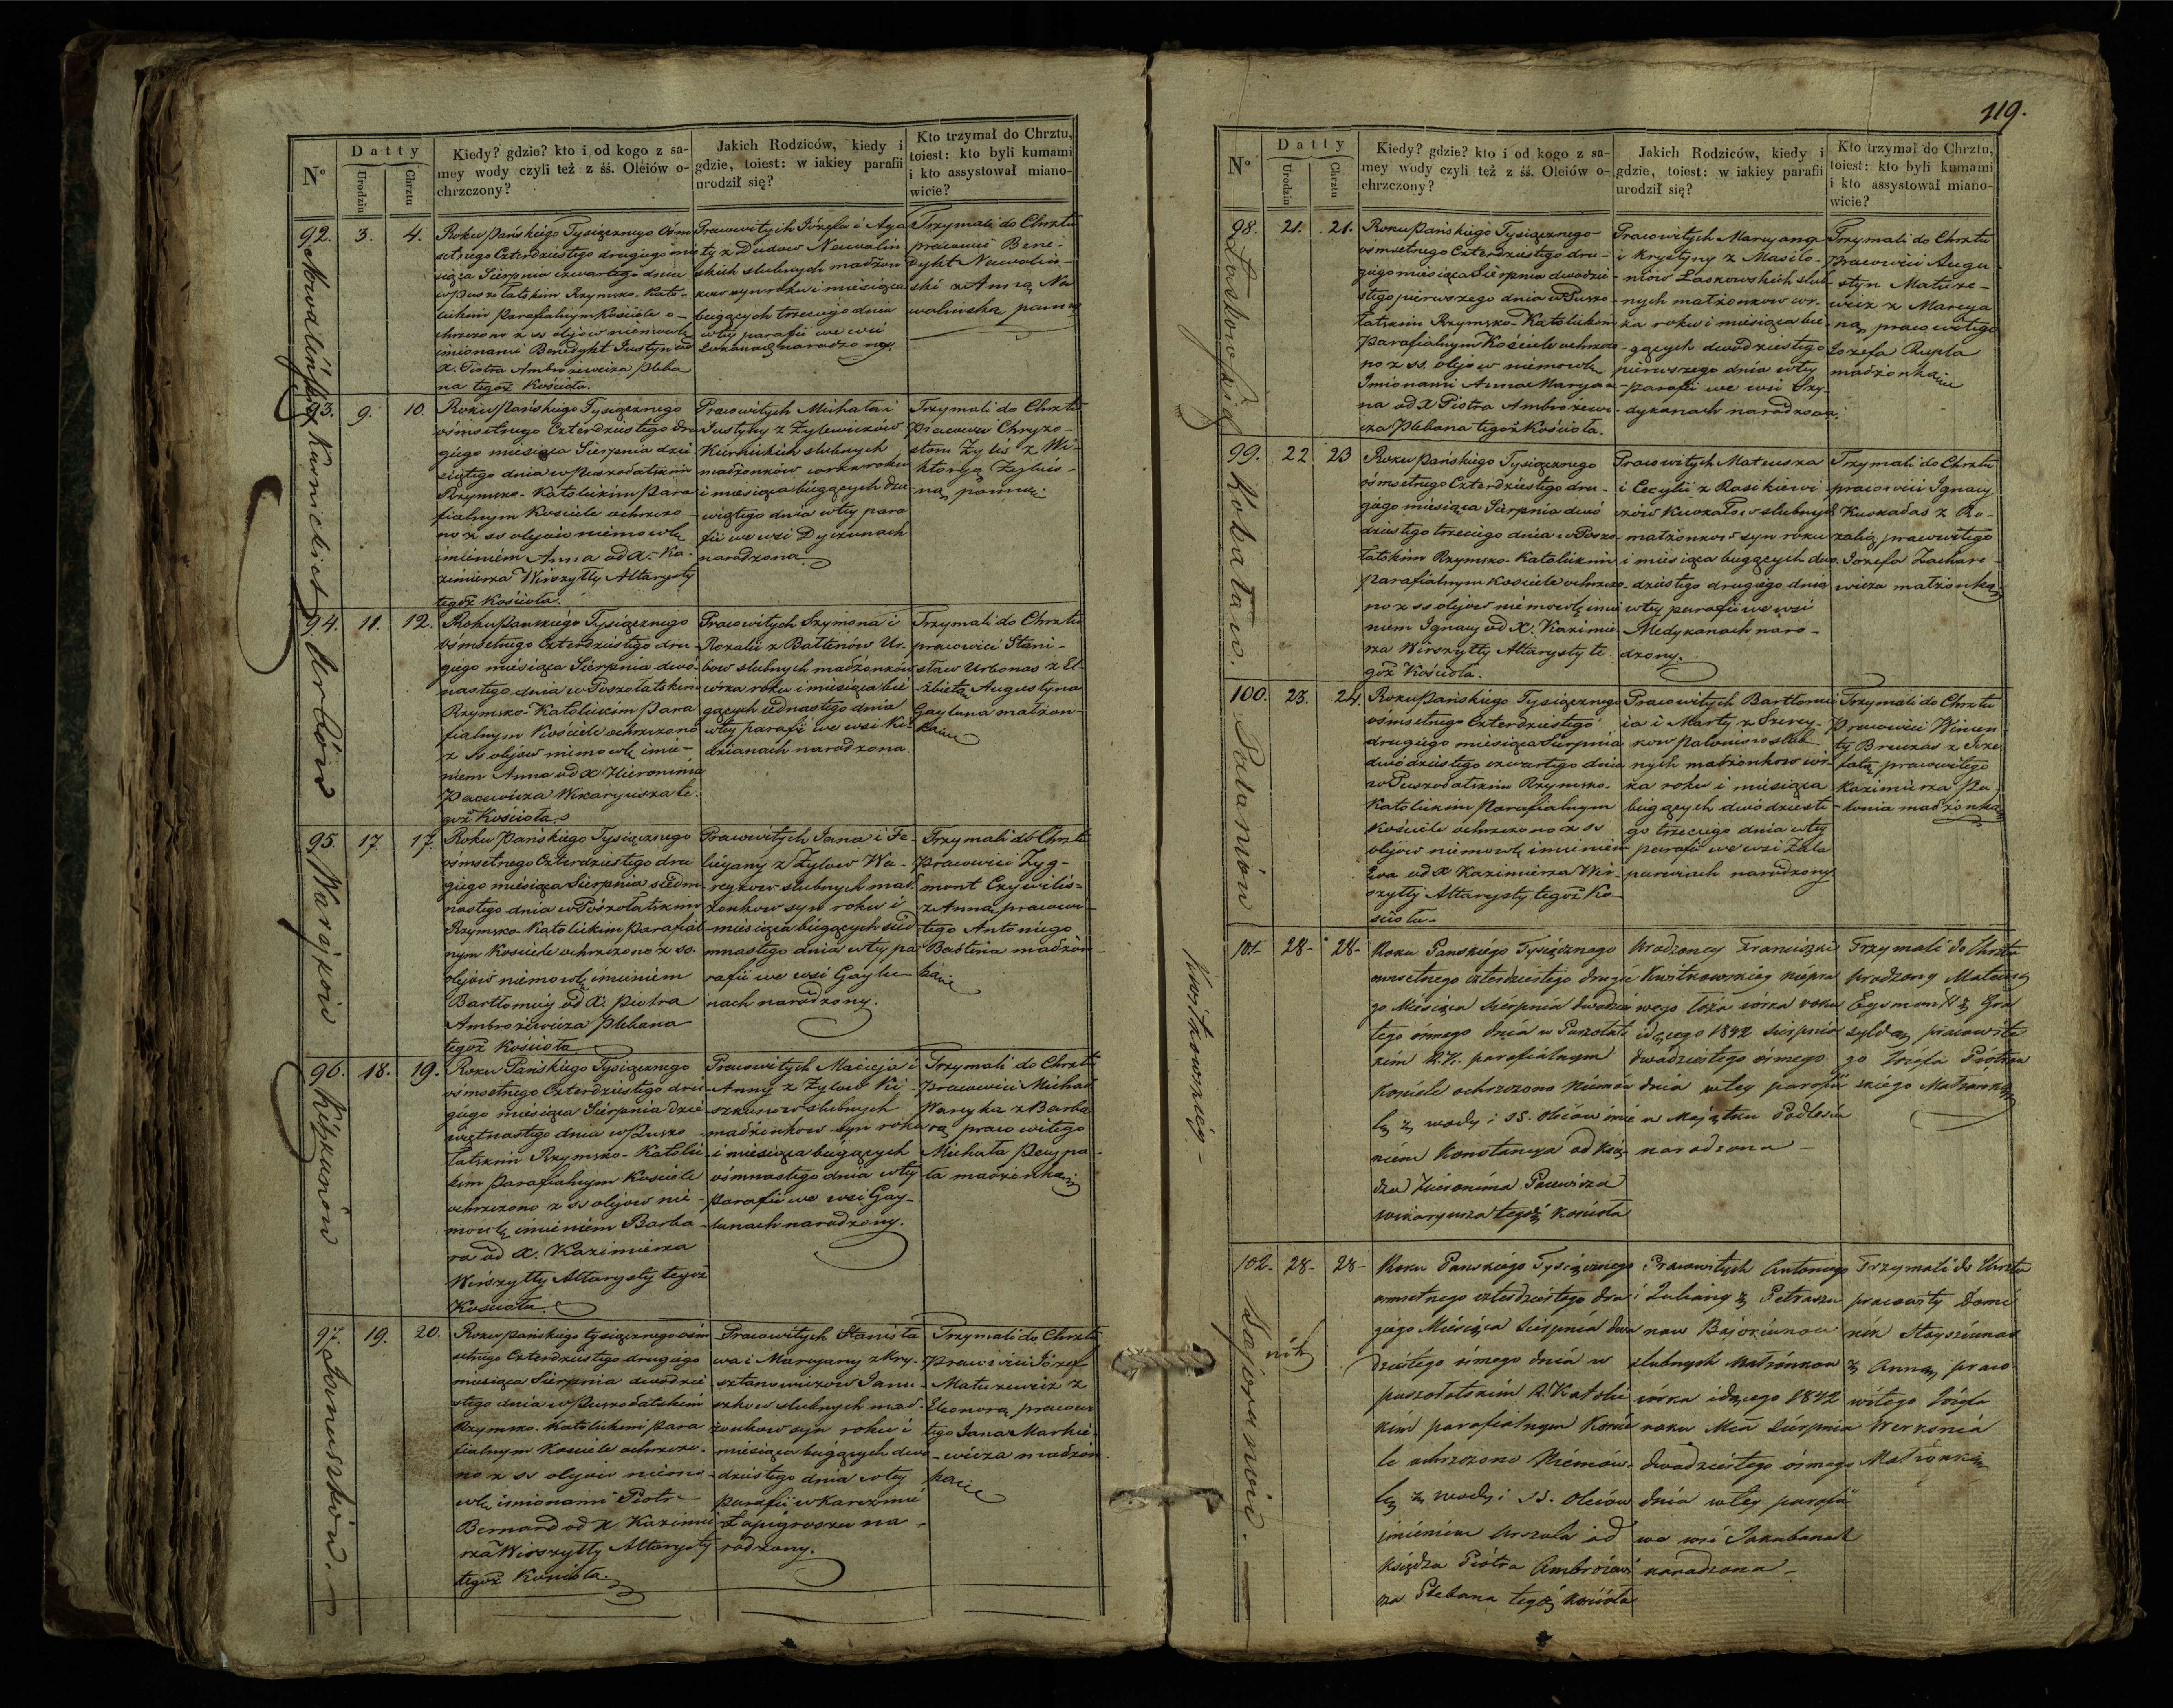 119.
N°
Datty
Urodzin
Chrztu
Kiedy? gdzie? kto i od kogo z sa-
mey wody czyli też z śś. Oleiów o-
chrzczony?
Jakich Rodziców, kiedy i
gdzie, toiest: w iakiey parafii
urodził się?
Kto trzymał do Chrztu,
toiest: kto byli kumami
i kto assystował miano-
wicie?
92.
3.
4.
Roku Pańskiego Tysiącznego Ośm
setnego Czterdziestego drugiego mie
siąca Sierpnia czwartego dnia
w Puszołatskim Rzymsko-Kato-
lickim Parafialnym Kościele o-
chrzczono z ss olejów niemowlę
imionami Benedykt Justyn od
X. Piotra Ambrożewicza Pleba
na tegoż Kościoła.
Pracowitych Józefa i Aga
ty z Dudów Nawalin
skich slubnych małżon
ków syn roku i miesiąca
bieżących trzeciego dnia
w tey parafii we wsi
Trzymali do Chrztu
pracowici Bene-
dykt Nawaliń-
ski z Anną Na
walinską panną
93.
9.
10.
Roku Pańskiego Tysiącznego
ośmsetnego Czterdziestego dru
giego miesiąca Sierpnia dzie
siątego dnia w Puszołatskim
Rzymsko-Katolickim Para
fialnym Kościele ochrzczo-
no z ss olejów niemowlę
imieniem Anna od X. Ka-
zimierza Wirszyłły Altarysty
tegoż Kościoła.
Pracowitych Michała i
Justyny z Żylewiczów
slubnych
małżonków córka roku
i miesiąca bieżących dzie
wiątego dnia w tey para
fii we wsi Dyczunach
narodzona
Trzymali do Chrztu
Pracowici Chryzo-
stom Żylis z Wi-
ktoryą
ną panną
94.
11.
12.
Urbów
Roku Pańskiego Tysiącznego
ośmsetnego Czterdziestego dru
giego miesiąca Sierpnia dwó-
nastego dnia w Poszołatskim
Rzymsko-Katolickim Para
fialnym Kościele ochrzczono
z ss olejów niemowlę imie-
niem Anna od X Hieronima
Pacewicza Wikaryusza te-
goż Kościoła
Pracowitych Szymona i
Rozalii z Bałtenów Ur-
bow slubnych małżonków
córka roku i miesiąca bie
gących iednastego dnia
w tey parafii we wsi Ki-
dzianach narodzona
Trzymali do Chrztu
pracowici Stani-
sław Urbonas z El-
żbietą Augustyna
Gayluna małżon-
kaią
95.
17
17.
Roku Pańskiego Tysiącznego
ośmsetnego Czterdziestego dru
giego miesiąca Sierpnia siedm-
nastego dnia w Poszołatskim
Rzymsko Katolickim Parafial
nym Kościele ochrzczono z ss.
olejów niemowlę imieniem
Bartłomiej od X. Piotra
Ambrożewicza Plebana
tegoż Kościoła
Pracowitych Jana i Fe
licyany z Żylow Wa-
reykow slubnych mał-
żonkow syn roku i
miesiąca bieżących sied
mnastego dnia w tey pa
rafii we wsi Gaylu-
nach narodzony.
Trzymali do Chrztu
Pracowici Zyg-
mont
z Anną pracowi-
tego Antoniego
Bałtena małżon-
kaią
96.
18.
19.
Kiszkunów
Roku Pańskiego Tysiącznego
ośmsetnego Czterdziestego dru
giego miesiąca Sierpnia dzie
więtnastego dnia w Puszo-
łatskim Rzymsko-Katolic
kim Parafialnym Kościele
ochrzczono z ss olejow nie-
mowlę imieniem Barba-
ra od X. Kazimierza
Wirszyłły Altarysty tegoż
Kościoła.
Pracowitych Macieja i
Anny z Żylow Ki-
szkunow slubnych
małżonkow syn roku
i miesiąca bieżących
ośmnastego dnia w tey
Parafii we wsi Gay-
lunach narodzony.
Trzymali do Chrztu
Pracowici Michał
Wareyka z Barba
rą pracowitego
Michała
małżonkaią
97.
19.
20.
Januszków.
Roku Pańskiego tysiącznego ośm
setnego Czterdziestego drugiego
miesiąca Sierpnia dwudzie
stego dnia w Puszołatskim
Rzymsko-Katolickim Para
fialnym Kościele ochrzczo-
no z ss olejów niemo-
wlę imionami Piotr
Bernard od X Kazimie
rza Wirszyłły Altarysty
tegoż Kościoła.
Pracowitych Stanisła
wa i Maryanny z Kry-
sztanowiczow Janu-
szkow slubnych mał-
żonkow syn roku i
miesiąca bieżących dwu
dziestego dnia w tey
Parafii w Karczmie
Łapigroszu na-
rodzony.
Trzymali do Chrztu
Pracowici Józef
Maturewicz z
Eleonorą pracowi
tego Jana Markie-
wicza małżon
kaią
N°
Datty
Urodzin
Chrztu
Kiedy? gdzie? kto i od kogo z sa-
mey wody czyli też z śś. Oleiów o-
chrzczony?
Jakich Rodziców, kiedy i
gdzie, toiest: w iakiey parafii
urodził się?
Kto trzymał do Chrztu,
toiest: kto byli kumami
i kto assystował miano-
wicie?
98.
21.
21.
Roku Pańskiego Tysiącznego
ośmsetnego Czterdziestego dru-
giego miesiąca Sierpnia dwudzie
stego pierwszego dnia w Puszo-
łatskim Rzymsko-Katolickim
Parafialnym Kościele ochrzczo-
no z ss. olejów niemowlę
Imionami Anna Marya-
na od X Piotra Ambrożewi-
cza Plebana tegoż Kościoła.
Pracowitych Maryana
i Krystyny z Masilo-
niow Łaskowskich slub-
nych małżonkow cór-
ka roku i miesiąca bie
gących dwudziestego
pierwszego dnia w tey
parafii we wsi Szy-
dykanach narodzona.
Trzymali do Chrztu
Pracowici Augu-
styn Mature-
wicz z Marcya
ną pracowitego
Jozefa Rupla
małżonkaią
99.
22
23
Kobaław.
Roku Pańskiego Tysiącznego
ośmsetnego Czterdziestego dru-
giego miesiąca Sierpnia dwu
dziestego trzeciego dnia w Poszo-
łatskim Rzymsko-Katolickim
Parafialnym Kościele ochrzczo-
no z ss olejow niemowlę imie
niem Ignacy od X. Kazimie-
rza Wirszyłły Altarysty te-
goż Kościoła.
Pracowitych Mateusza
i Cecylii z Rasikiewi
czów slubnych
małżonkow syn roku
i miesiąca bieżących dwu
dziestego drugiego dnia
w tey parafii we wsi
Medykanach naro-
dzony.
Trzymali do Chrztu
pracowici Ignacy
z Ro-
zalią pracowitego
Józefa Zachare-
wicza małżonką
100.
23.
24.
Połaniów
Roku Pańskiego Tysiącznego
ośmsetnego Czterdziestego
drugiego miesiąca Sierpnia
dwudziestego czwartego dnia
w Puszołatskim Rzymsko-
Katolickim Parafialnym
Kościele ochrzczono z ss
olejow niemowlę imieniem
Ewa od X Kazimierza Wir-
szyłły Altarysty tegoż Ko-
ścioła.
Pracowitych Bartłomie
ja i Marty z
slub-
nych małżonkow cór-
ka roku i miesiąca
bieżących dwudzieste
go trzeciego dnia w tey
parafii we wsi Zala
narodzony
Trzymali do Chrztu
Pracowici Wincen-
ty Bruzas z
pracowitego
Kazimierza Pa-
łonia małżonką
101.
28-
28-
Kwitkowskieg-
Roku Panskiego Tysiącznego
osmsetnego czterdziestego drugie
go Miesiąca Sierpnia dwudzies
tego ósmego dnia w Puszołats
kim R.K. parafialnym
Kościele ochrzczono Niemow
lę z wody i SS. Oleiow imie
niem Konstancya od Księ-
dza Hieronima Pacewicza
wikaryusza tegóż Kościoła
Urodzoney Franciszki
Kwitkowskiey niepra
wego łoża córka roku
idącego 1842 Sierpnia
dwudziestego ósmego
dnia w tey parafii
w Majątku Podlesiu
narodzona -
Trzymali do Chrztu
Urodzony Mateusz
Eysmontt z
pracowite
go Józefa Piotrow
skiego Małżonką
102-
28-
28-
Roku Panskiego Tysiącznego
osmsetnego czterdziestego dru
giego Miesiąca Sierpnia dwu
dziestego ósmego dnia w
puszołatskim R. Katolic
kim parafialnym Koście
le ochrzczono Niemow-
lę z wody i SS. Oleiów
imieniem Urszula od
Księdza Piotra Ambrożewi
cza Plebana tegóż Kościoła
Pracowitych Antoniego
i Julianny z Petraszu
now Bajorunow
slubnych Małżonkow
córka idącego 1842
roku Mca Sierpnia
dwudziestego ósmego
dnia w tey parafii
we wsi Jakubanach
narodzona -
Trzymali do Chrztu
pracowity Domi
nik
z Anną praco
witego Józefa
Małżonką